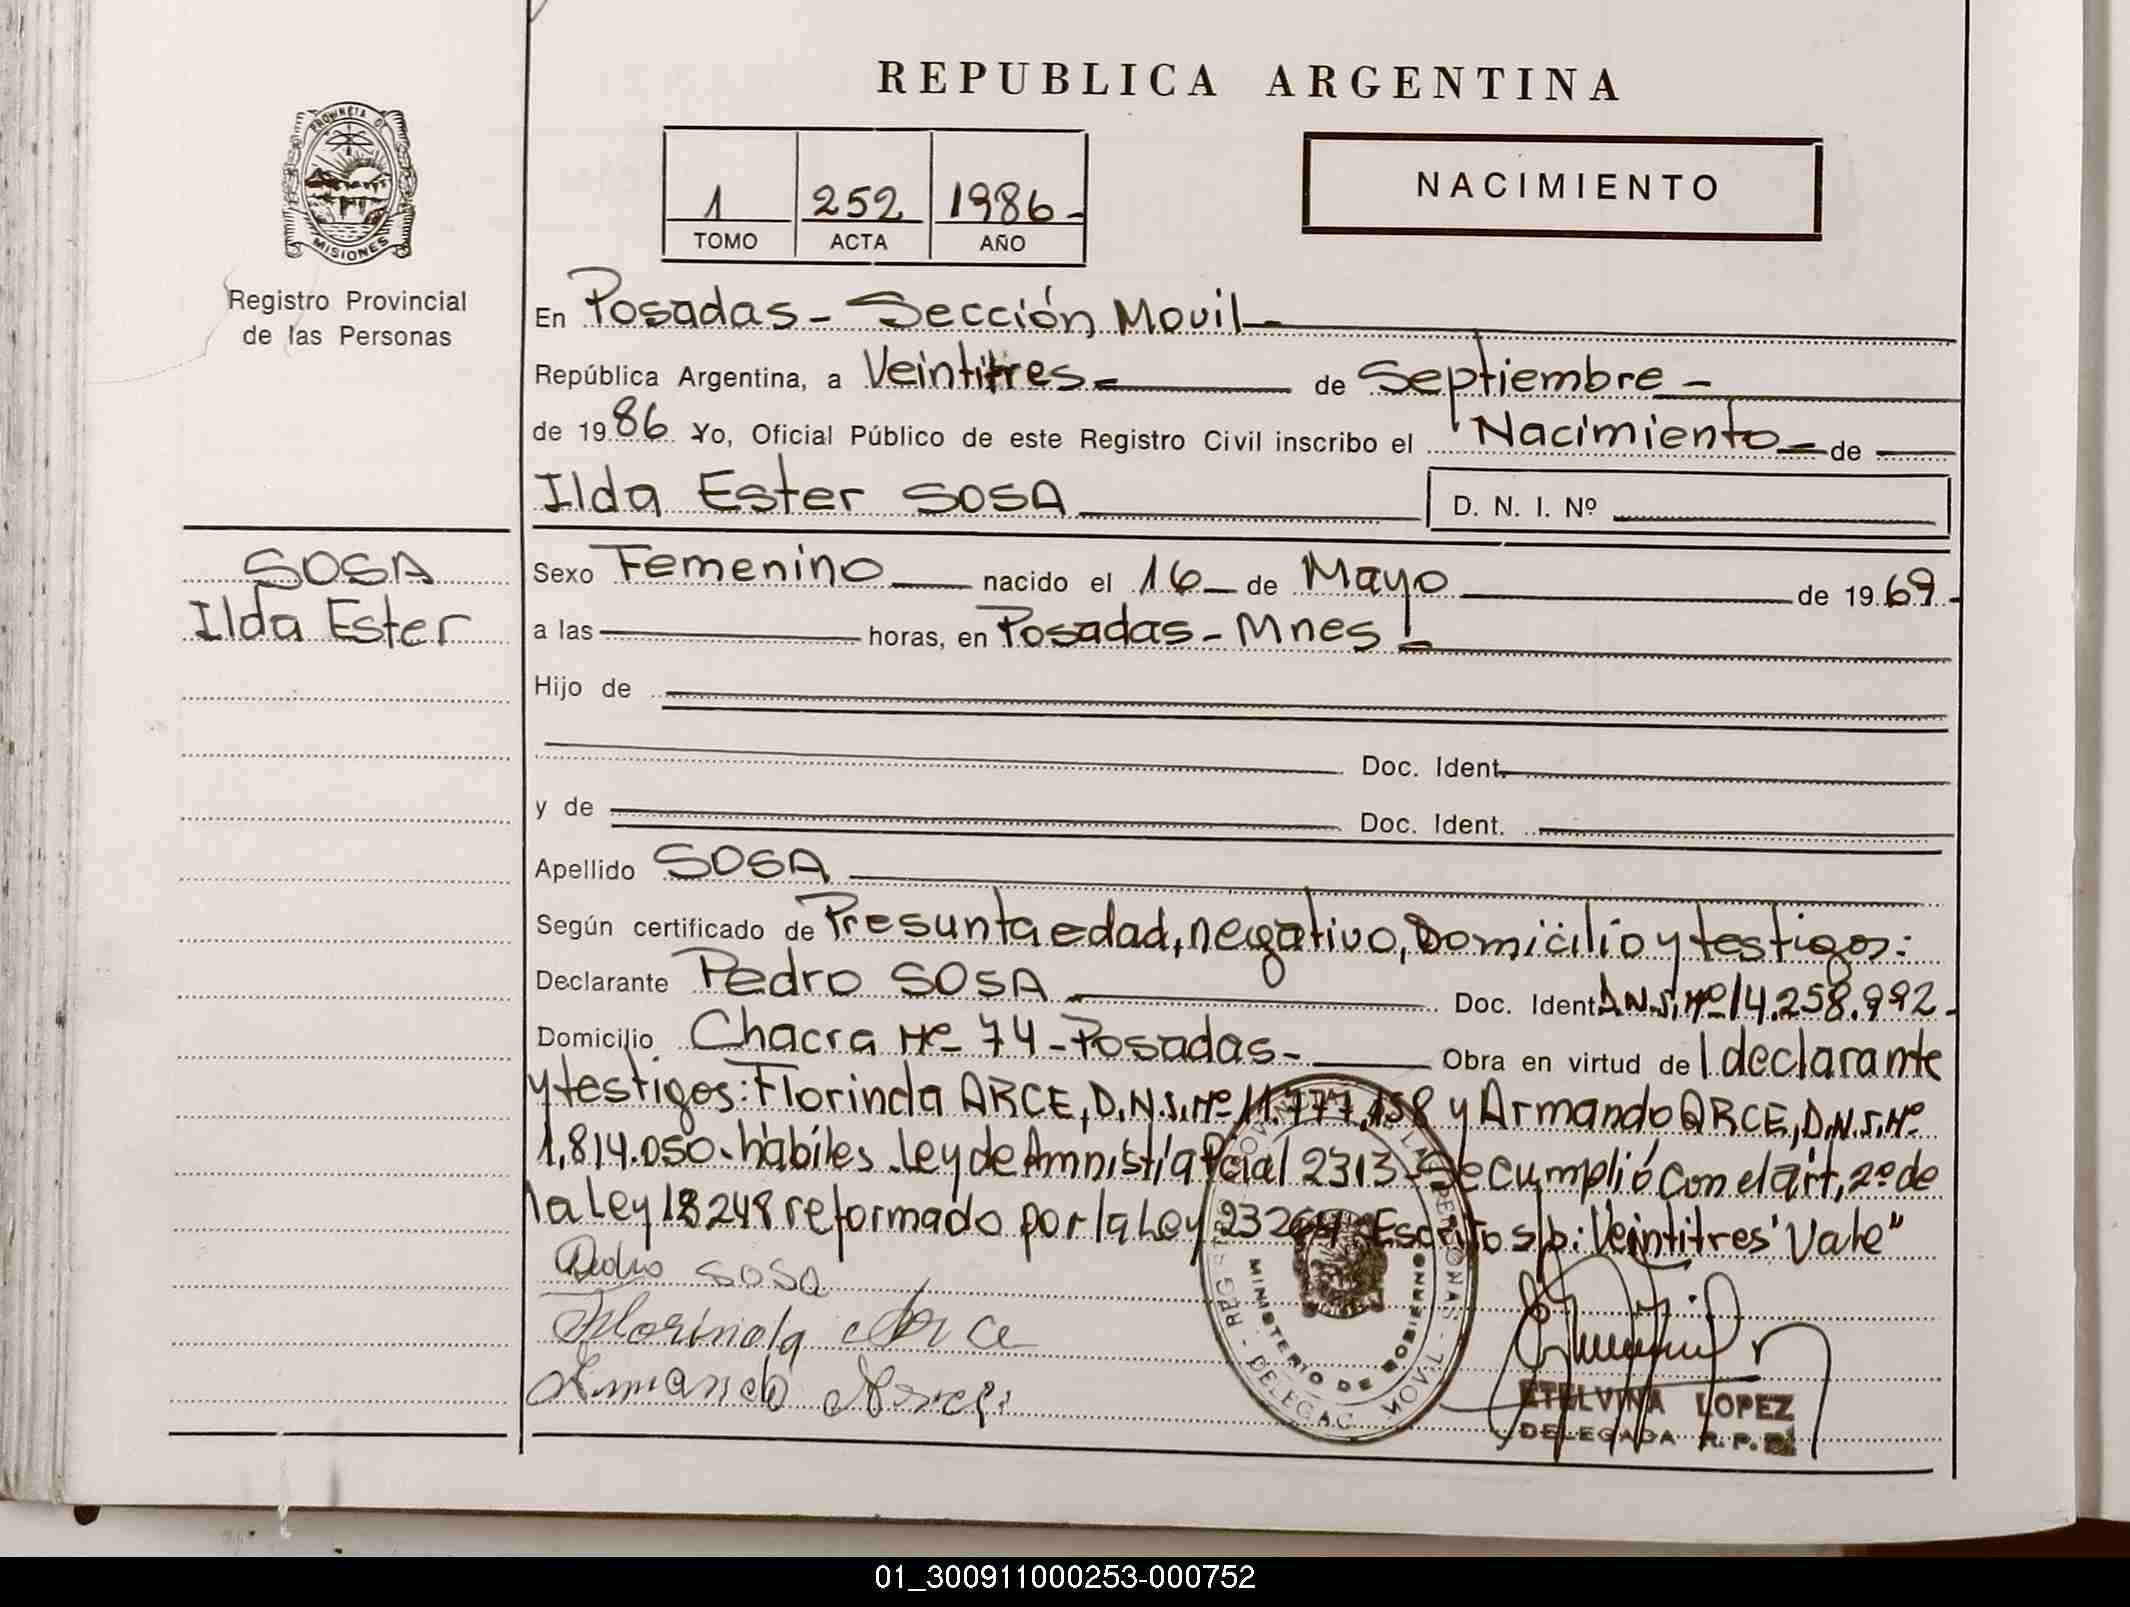 REPUBLICA ARGENTINA
PROVINCIA DE
MISIONES
Registro Provincial
de las Personas
1 252 1986-
TOMO ACTA AÑO
NACIMIENTO
En Posadas - Sección Movil -
República Argentina, a Veintitres - de Septiembre -
de 1986 Yo, Oficial Público de este Registro Civil inscribo el Nacimiento - de
Ilda Ester SOSA D. N. I. Nº
SOSA
Ilda Ester
Sexo Femenino nacido el 16 - de Mayo de 1969.-
a las horas, en Posadas - Mnes -
Hijo de
Doc. Ident.
y de Doc. Ident.
Apellido SOSA
Según certificado de Presunta edad, negativo, Domicilio y testigos:
Declarante Pedro SOSA Doc. Ident. D.N.I. Nº 14.258.992-
Domicilio Chacra Nº 74 - Posadas - Obra en virtud del declarante
y testigos: Florinda ARCE, D.N.I. Nº 11.777.158 y Armando ARCE, D.N.I. Nº
1,814.050. hábiles. Ley de Amnistía Pcial 2313 - Se cumplió con el art, 2º de
la Ley 18248 reformado por la Ley 23264. Escrito s/b: Veintitres "Vale"
Pedro SOSA
Florinda Arce
Armando Arce
MINISTERIO DE GOBIERNO
ETELVINA LOPEZ
DELEGADA R. P. P.
01_300911000253-000752